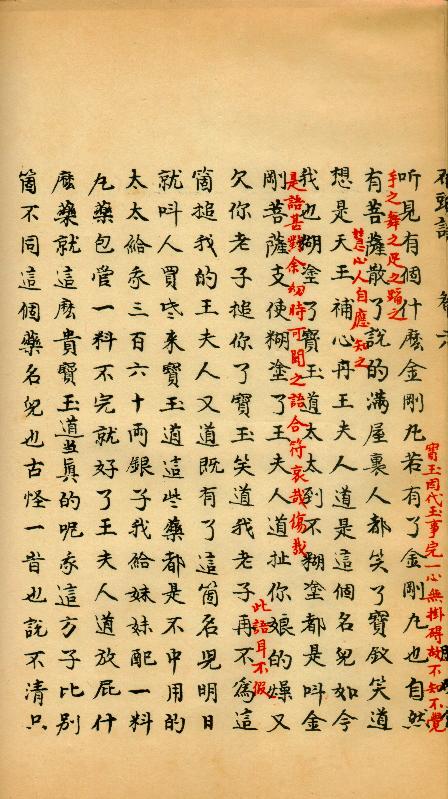 寶玉因代玉事完一心無掛碍故不知不覺
手之舞之足之蹈之
听見有個什麽金剛凡若有了金剛凡也自然
有菩薩散了說的滿屋裏人都笑了寶釵笑道
慧心人自應知之
想是天王補心丹王夫人道是這個名兒如今
我也糊塗了寶玉道太太到不糊塗都是叫金
是語甚對余幼時可聞之語合符哀哉傷哉
剛菩薩支使糊塗了王夫人道扯你娘的燥又
此語耳不假
欠你老子搥你了寶玉笑道我老子再不爲這
箇搥我的王夫人又道既有了這箇名兒明日
就叫人買些來寶玉道這些藥都是不中用的
太太給我三百六十兩銀子我給妹妹配一料
凡藥包管一料不完就好了王夫人道放屁什
麽藥就這麽貴寶玉道當真的呢我這方子比別
箇不同這個藥名兒也古怪一音也說不清只